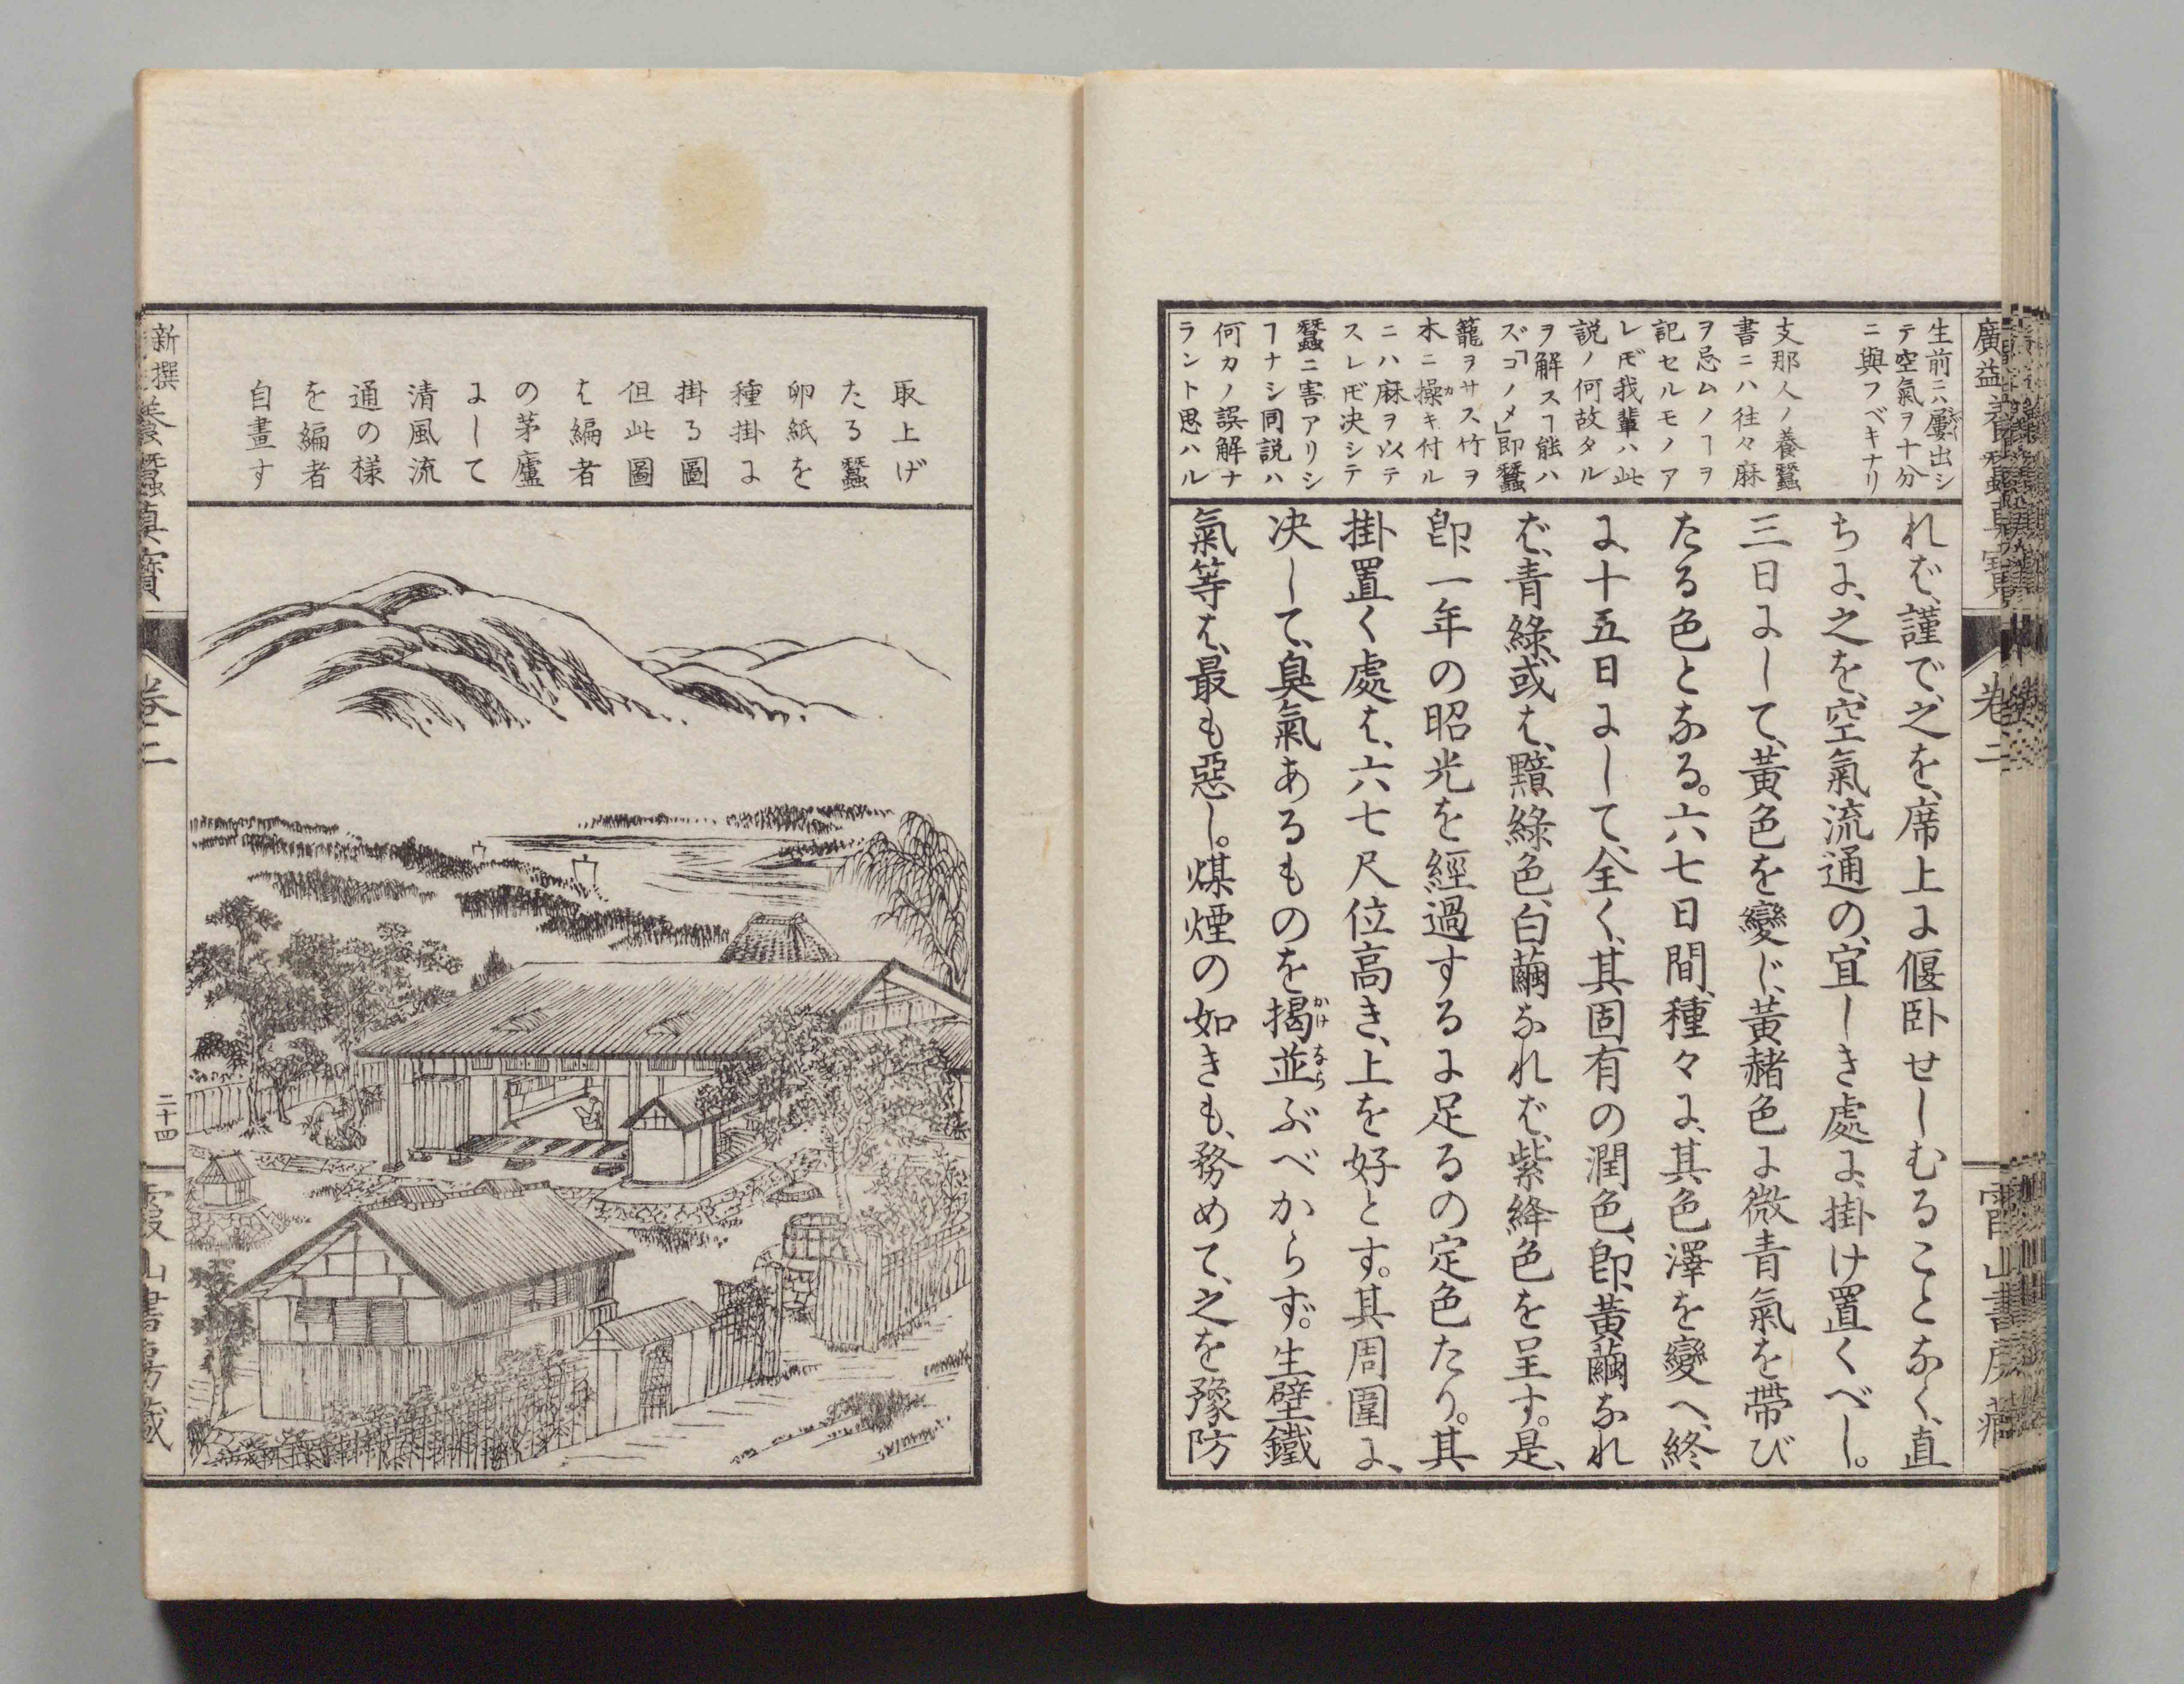 廣益養蠶眞寶
卷二
霞山書房藏
生前ニハ屢出シ
テ空氣ヲ十分
ニ與フベキナリ
支那人ノ養蠶
書ニハ往々麻
ヲ忌ムノヿヲ
記セルモノア
レ𪜈我輩ハ此
説ノ何故タル
ヲ解スヿ能ハ
ズ「コノメ」即蠶
籠ヲサス竹ヲ
木ニ操キ付ル
ニハ麻ヲ以テ
スレ𪜈决シテ
蠶ニ害アリシ
ヿナシ同説ハ
何カノ誤解ナ
ラント思ハル
れば、謹で、之を、席上に偃卧せしむることなく、直
ちに、之を、空氣流通の、宜しき處に、掛け置くべし。
三日にして、黃色を變じ、黃赭色に微青氣を帶び
たる色となる。六七日間、種々に、其色澤を變へ、終
に、十五日にして、全く、其固有の潤色、卽、黃繭なれ
ば、青綠、或は、黯綠色、白繭なれば、紫絳色を呈す。是、
卽、一年の昭光を經過するに足るの定色たり。其
掛置く處は、六七尺位高き、上を好とす。其周圍に、
决して、臭氣あるものを揭並ぶべからず。生壁鐵
氣等は、最も惡し。煤煙の如きも、務めて、之を豫防
取上げ
たる蠶
卵紙を
種掛に
掛る圖
但此圖
は編者
の茅廬
にして
清風流
通の樣
を編者
自畫す
新撰養蠶眞寶
卷二
二十四
霞山書房藏